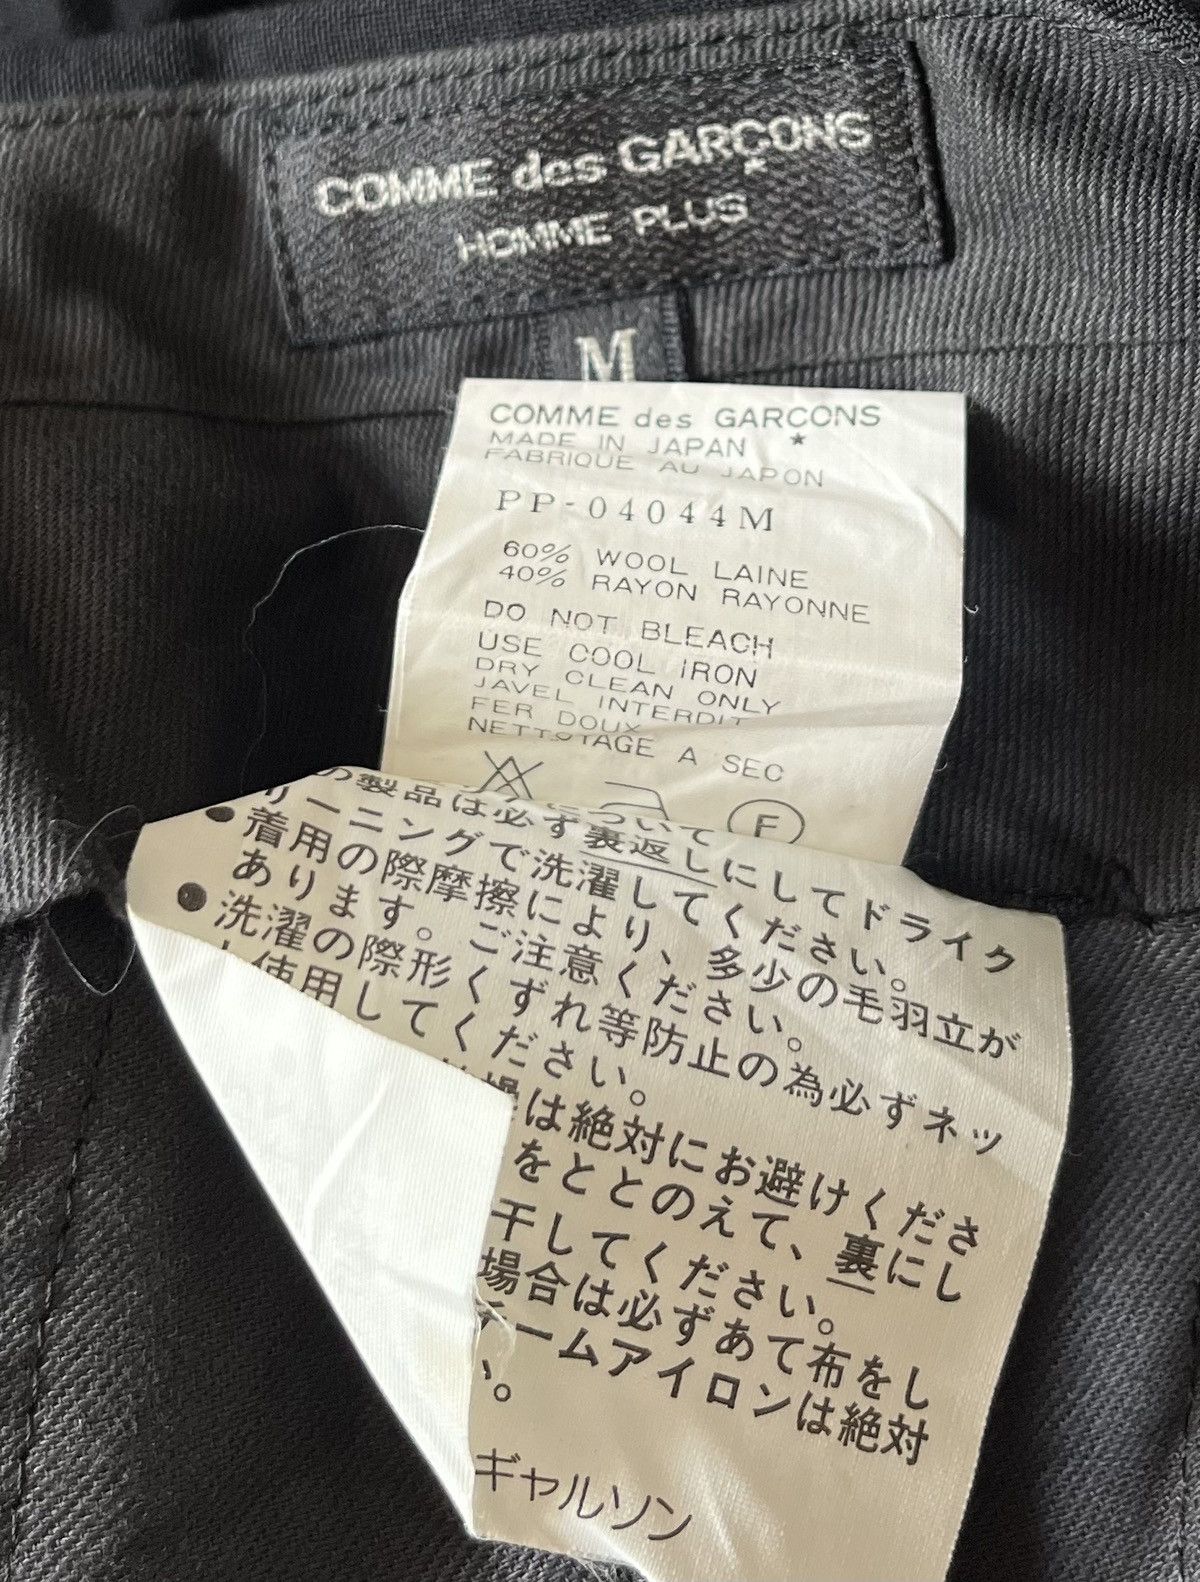 COMME des GARCONS
HOMME PLUS
M
COMME des GARCONS
MADE IN JAPAN
FABRIQUE AU JAPON
PP-04044M
60% WOOL LAINE
40% RAYON RAYONNE
DO NOT BLEACH
USE COOL IRON
DRY CLEAN ONLY
JAVEL INTERDIT
FER DOUX
NETTOYAGE A SEC
F
について
の製品は必ず裏返しにしてドライク
リーニングで洗濯してください。
●着用の際摩擦により、多少の毛羽立が
あります。ご注意ください。
●洗濯の際形くずれ等防止の為必ずネッ
使用してください。
燥は絶対にお避けくださ
をととのえて、裏にし
干してください。
場合は必ずあて布をし
チームアイロンは絶対
い。
ギャルソン